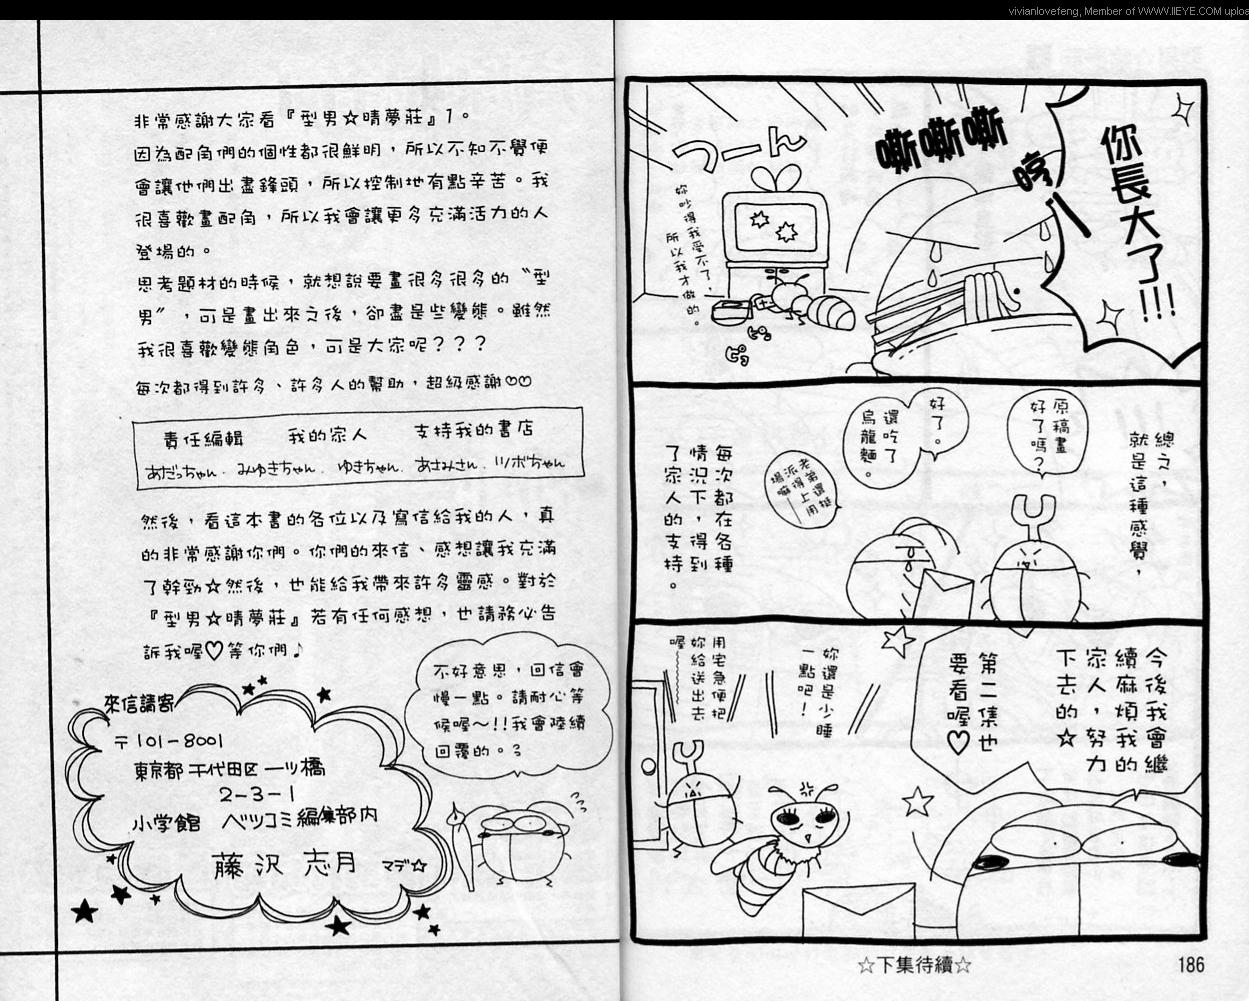 vivianlovefeng, Member of WWW.IIEYE.COM uploa
你長大了!!!
嘶嘶嘶
哼
つーん
妳吵得我受不了，
所以我才做的。
總之，
就是這種感覺，
原稿畫
好了嗎？
好了。
還吃了
烏龍麵。
老弟還挺
派得上用
場嘛
每次都在各種
情況下，得到
了家人的支持。
今後我會繼
續麻煩我的
家人，努力
下去的☆
第二集也
要看喔♡
妳還是少睡
一點吧！
用宅急便把
妳給送出去
喔～～
☆下集待續☆
186
非常感謝大家看『型男☆晴夢莊』1。
因為配角們的個性都很鮮明，所以不知不覺便
會讓他們出盡鋒頭，所以控制地有點辛苦。我
很喜歡畫配角，所以我會讓更多充滿活力的人
登場的。
思考題材的時候，就想說要畫很多很多的〝型
男〞，可是畫出來之後，卻盡是些變態。雖然
我很喜歡變態角色，可是大家呢？？？
每次都得到許多、許多人的幫助，超級感謝♡♡
責任編輯　我的家人　支持我的書店
あだっちゃん．みゆきちゃん．ゆきちゃん．あさみさん．ツボちゃん
然後，看這本書的各位以及寫信給我的人，真
的非常感謝你們。你們的來信、感想讓我充滿
了幹勁☆然後，也能給我帶來許多靈感。對於
『型男☆晴夢莊』若有任何感想，也請務必告
訴我喔♡等你們♪
不好意思，回信會
慢一點。請耐心等
候喔～!!我會陸續
回覆的。
來信請寄
〒101-8001
東京都千代田区一ツ橋
2-3-1
小学館　ベツコミ編集部内
藤沢 志月 マデ☆